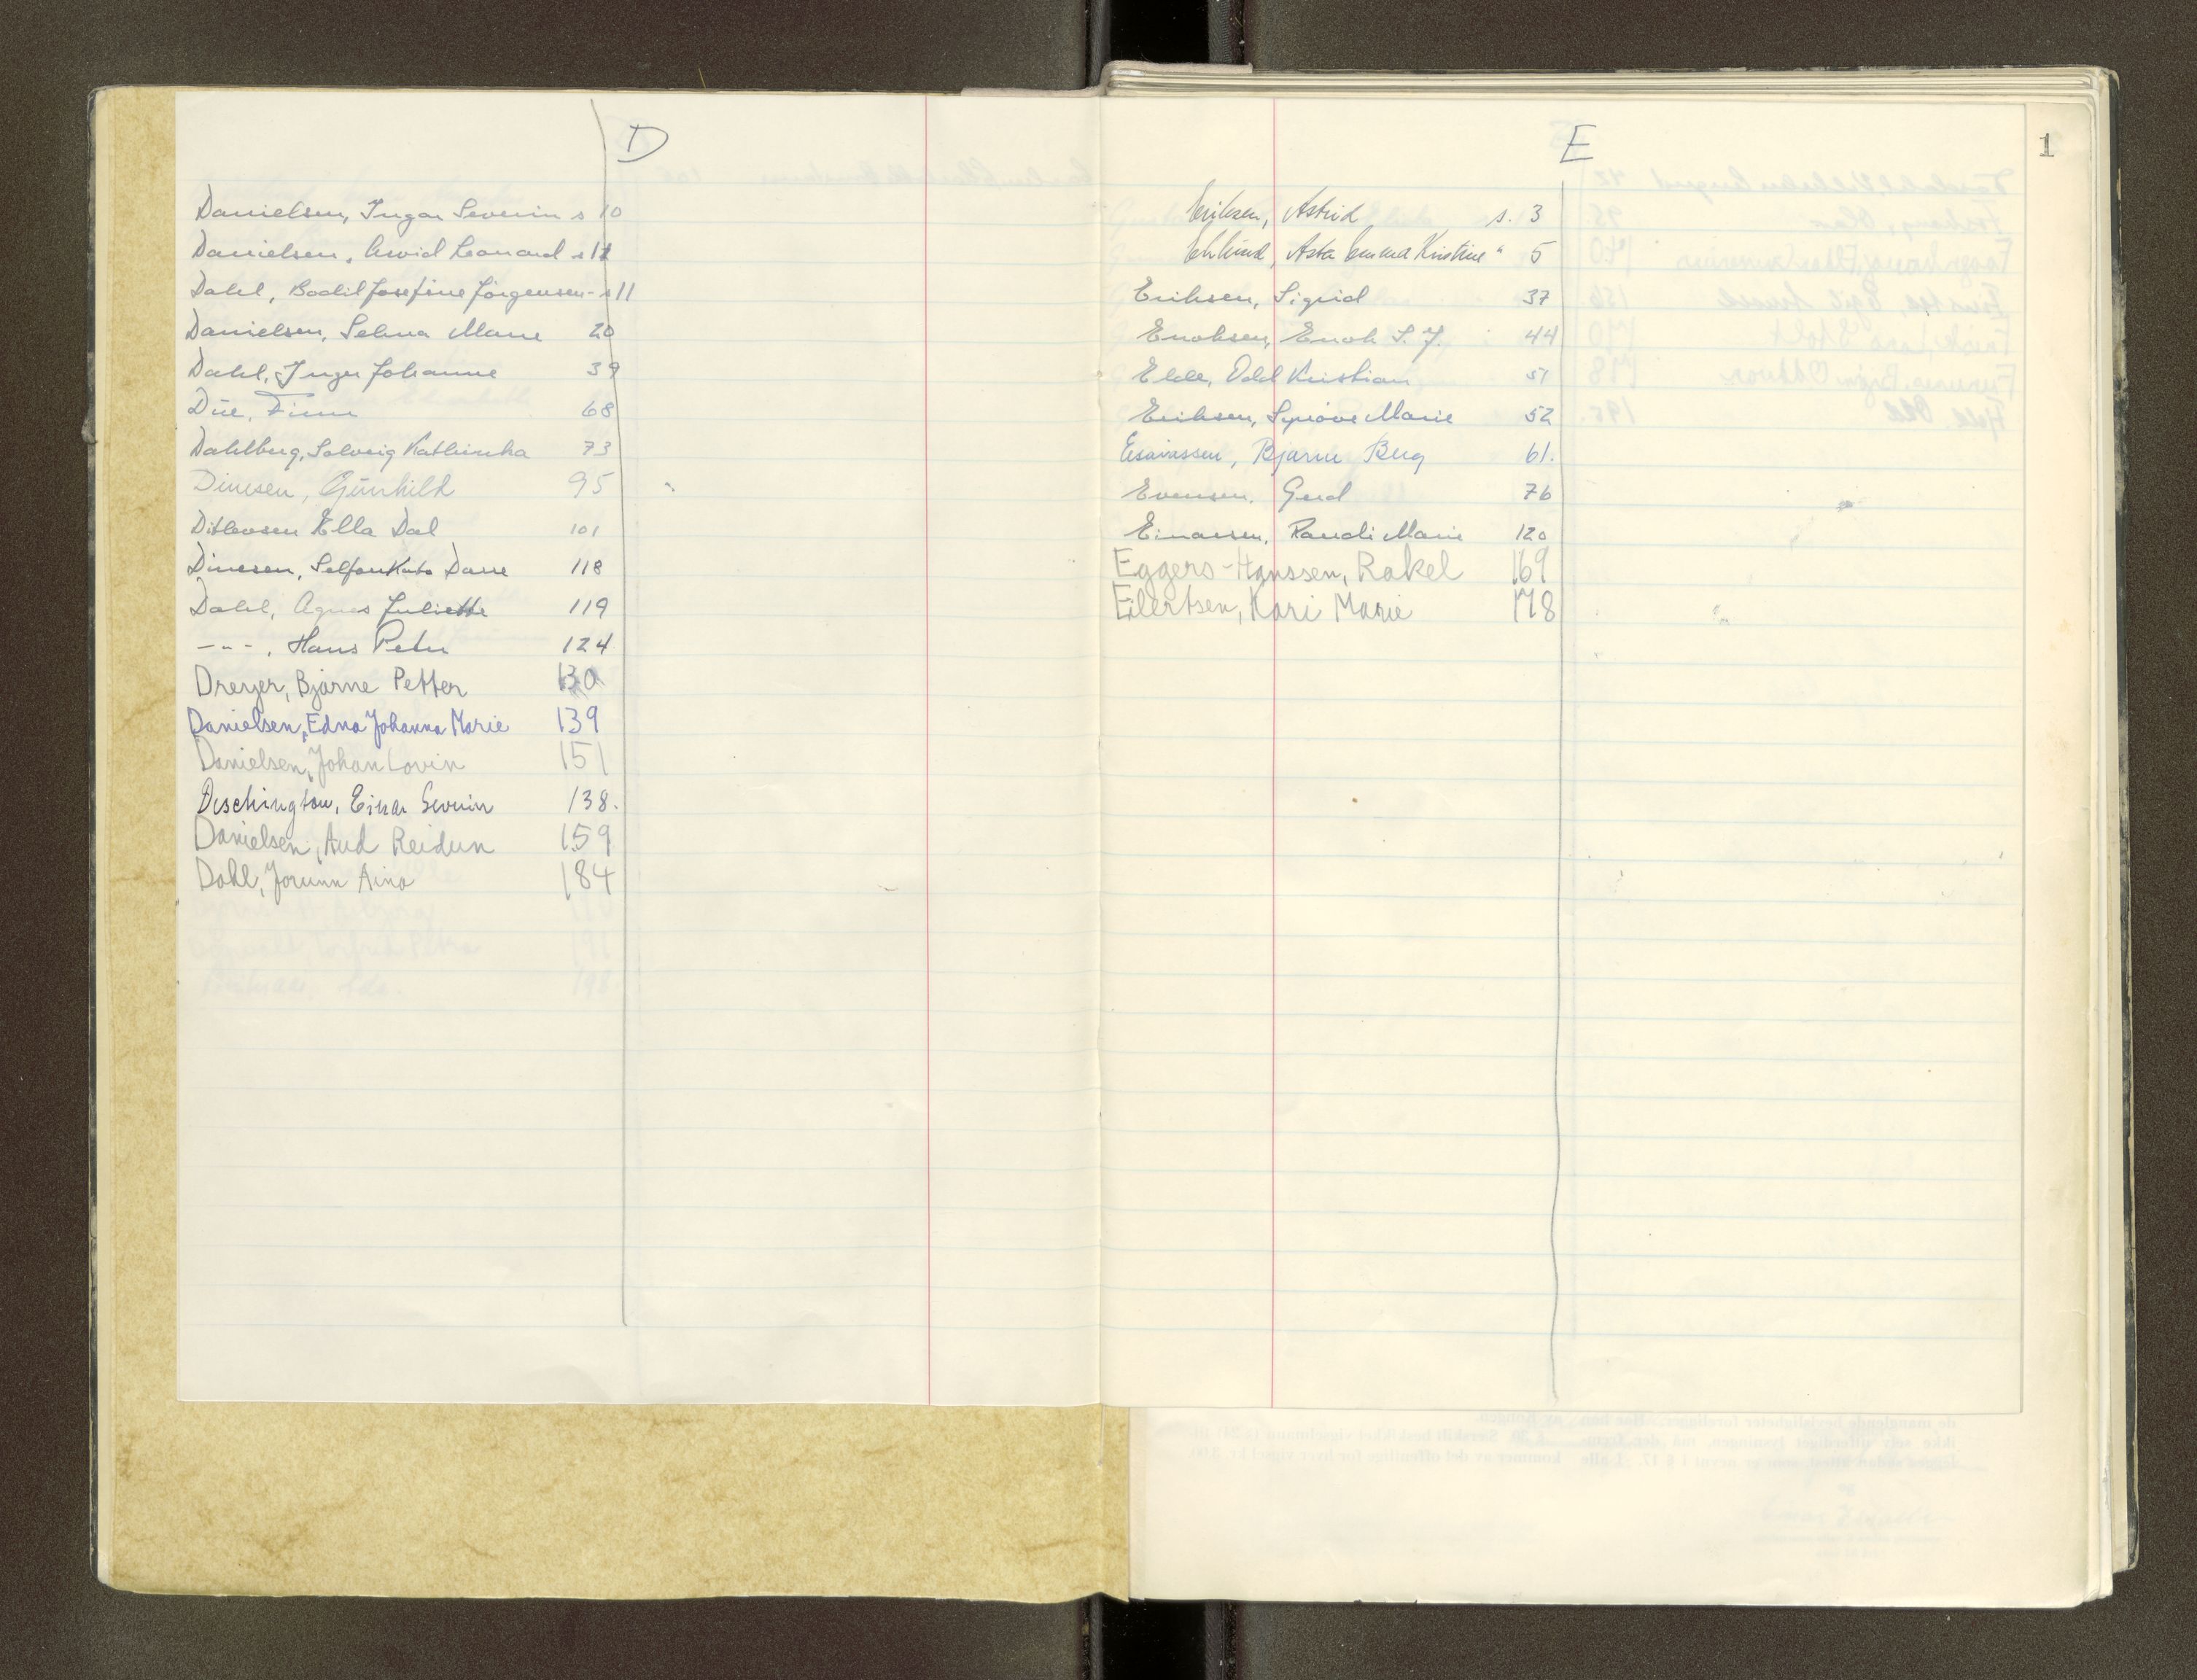 D
Danielsen, Ingar Severin s 10
Danielsen, Arvid Leonard s 11
Dahl, Bodil Josefine Jörgensen - s 11
Danielsen, Selma Marie 20
Dahl, Inger Johanne 39
Düe, Finn 68
Dahlberg, Solveig Kathinka 73
Dinesen, Gunhild 95
Ditlevsen Ella Dal 101
Dinesen, 118
Dahl, Agnes Juliette 119
- " - , Hans Peter 124
Dreyer, Bjarne Petter 130
Danielsen, Edna Johanna Marie 139
Danielsen, Johan Lovin 151
Dischington, Einar Severin 138.
Danielsen, Aud Reidun 159
Dahl, Jorunn Aina 184
E
1
Eriksen, Astrid s. 3
Asta Emma Kristine " 5
Eriksen, Sigrid 37
Enoksen, Enok S. J. 44
Elde, Odd Kristian 51
Eriksen, Synöve Marie 52
Esaiassen, Bjarne Berg 61.
Evensen, Gerd 76
Einarsen, Randi Marie 120
Eggers-Hanssen, Rakel 169
Eilertsen, Kari Marie 178